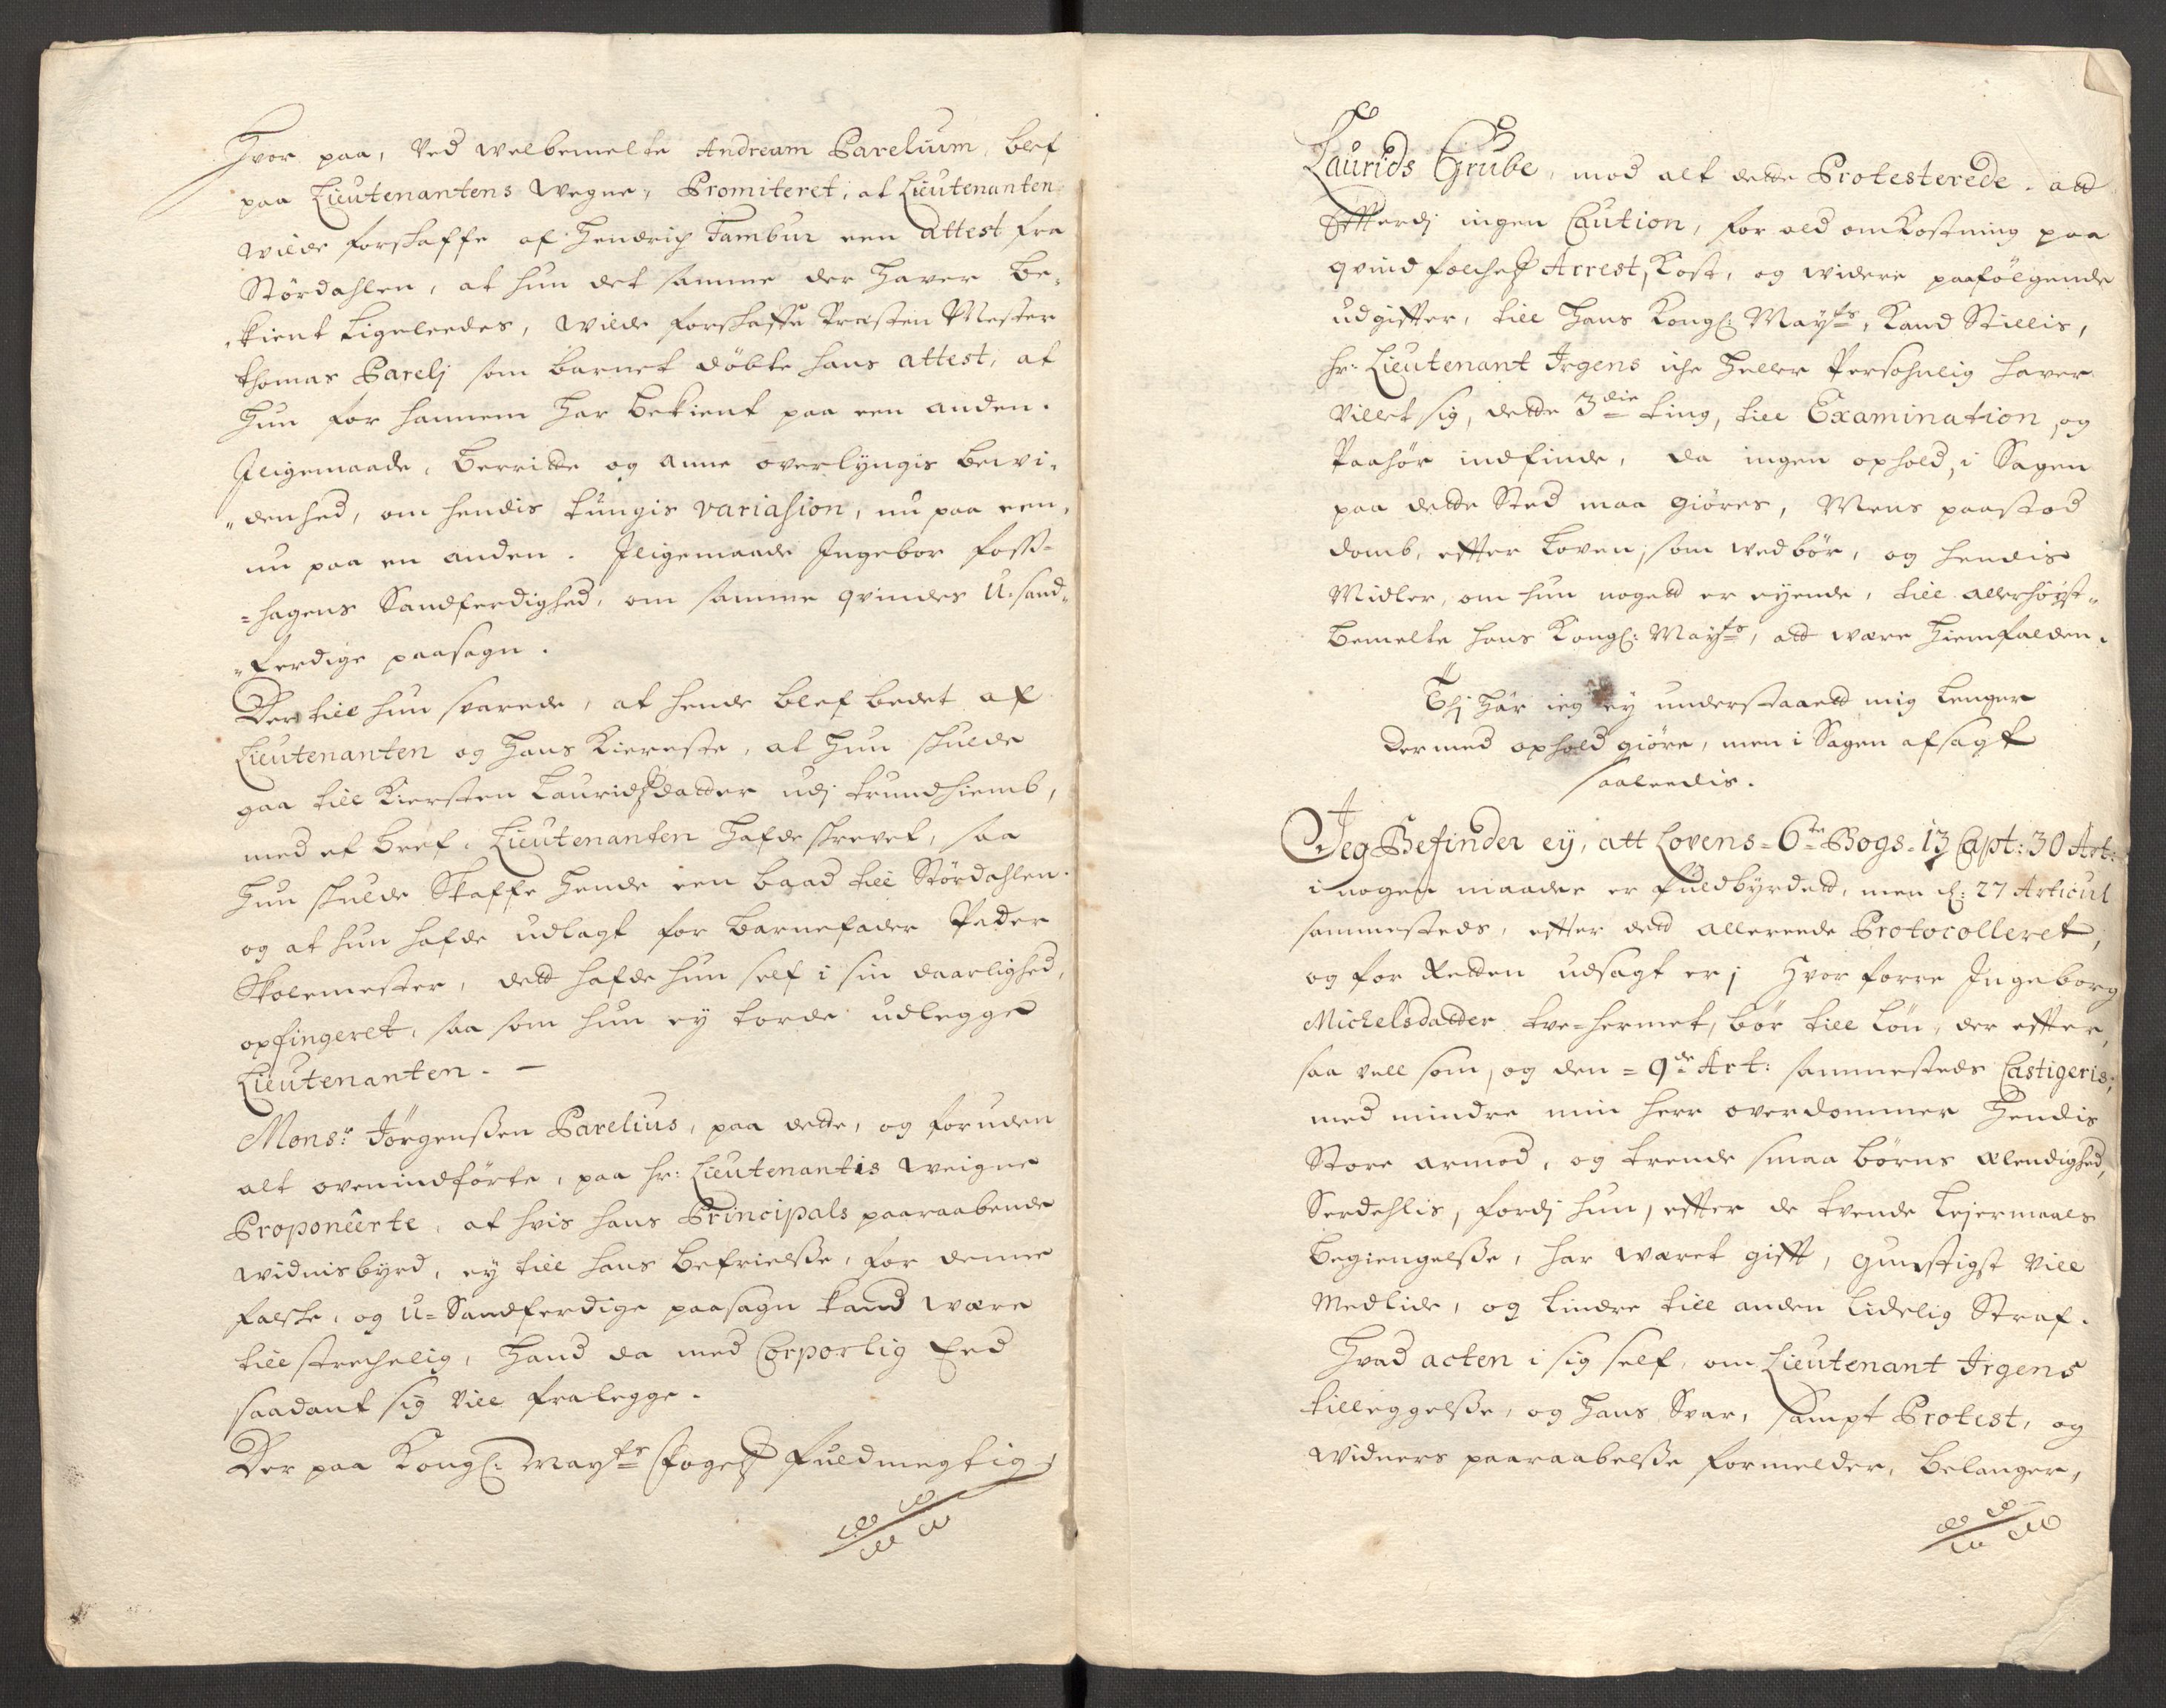 Hvor paa, Ved welbemelte Andream Parelium, blef
paa Lieutenantens wegne, Promiteret, at Lieutenanten
wilde forskaffe af Hendrich Tambur een attest fra
Stördahlen, at hun det samme der hafver be-
kient ligeleedes, wilde forskaffe Præsten Mester
Thomas Parelj som barnet döbte hans attest, at
Hun for hannem har bekient paa een anden.
Iligemaade, Berritte og Anne overlyngis bewi-
denhed, om hendis tungis variasion, nu paa een,
nu paa en anden. Iligemaade Ingebor foss-
hagens Sandferdighed, om samme qvindes U-sand-
ferdige paasagn.
Der till hun svarede, at hende blef bedet af
Lieutenanten og Hans Kiereste, at hun skulde
gaa till Kiersten Lauridsdatter udj trundhiemb,
med et breef, Lieutenanten hafde skrevet, saa
Hun skulde Skaffe hende een baad till Stördahlen.
og at hun hafde udlagt for barnefader Peder
Skolemester, dett hafde hun self i sin daarlighed,
opfingeret, saa som hun ey torde udlegge
Lieutenanten. -
Monsr. Jörgenssen Parelius, paa dette, og foruden
alt ovenindförte, paa hr: Lieutenantis weigne
Proponeerte, at hvis hans Principals paaraabende
widnisbyrd, ey till hans befrielsse, for denne
falske, og U-Sandferdige paasagn kand være
tillstrechelig, hand da med Corporlig Eed
saadant sig vill fralegge.
Der paa Kongl: Mayts fogets fuldmegtig,
Laurids Grube, mod alt dette Protesterede. att
Effterdj ingen Caution, for ald omkostning paa
qvindfolchetz Arrest, Kost, og widere paafölgende
udgiffter, till Hans Kongl: Mayts, Kand Stillis,
hr: Lieutenant Irgens iche heller Persohnlig hafver
villet sig, dette 3die ting, till Examination, og
Paahör indfinde, da ingen ophold, i Sagen
paa dette Sted maa giöres, Mens paastod
domb, effter Loven, som wedbör, og hendis
Midler, om hun nogett er eyende, till allerhöyst-
bemelte hans Kongl: Mayts, att være hiemfalden.
Thj har ieg ey understaaett mig lenger
dermed ophold giöre, men i Sagen afsagt
saaleedis.
Jeg Befinder ey, att Lovens 6te Bogs 13 Capt: 30 Art:
i nogen maade er fuldbyrdett, men d: 27 Articul
sammesteds, effter dett allereede Protocolleret,
og for Retten udsagt er; Hvor forre Ingeborg
Michelsdatter tve-hermet, bör till Lön, der effter,
saa vell som, og den 9de Art: sammesteds Castigeris,
med mindre min herr overdommer hendis
Store armod, og trende smaa börns ælendighed,
Serdehlis, fordj hun, effter de tvende Lejermaals
begiengelsse, har wæret gifft, gunstigst vill
Medlide, og lindre till anden lidelig Straf.
Hvad acten i sig self, om Lieutenant Irgens
tilleggelsse, og Hans Svar, sampt Protest, og
widners paaraabelsse formelder, belanger,